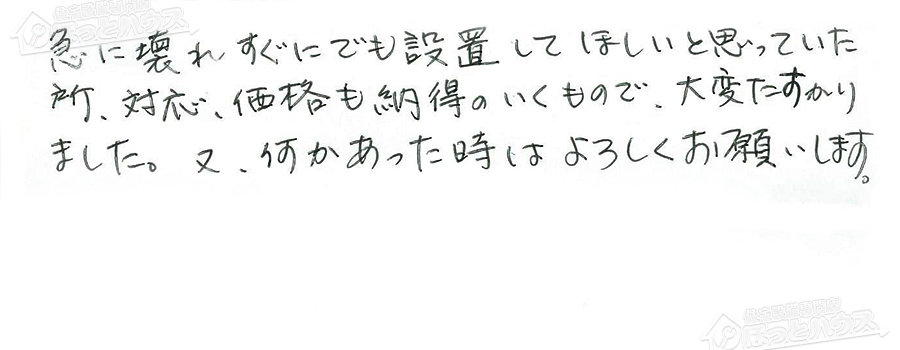 急に壊れすぐにでも設置してほしいと思っていた
所、対応、価格も納得のいくもので、大変たすかり
ました。又、何かあった時はよろしくお願いします。
ほっとハウス